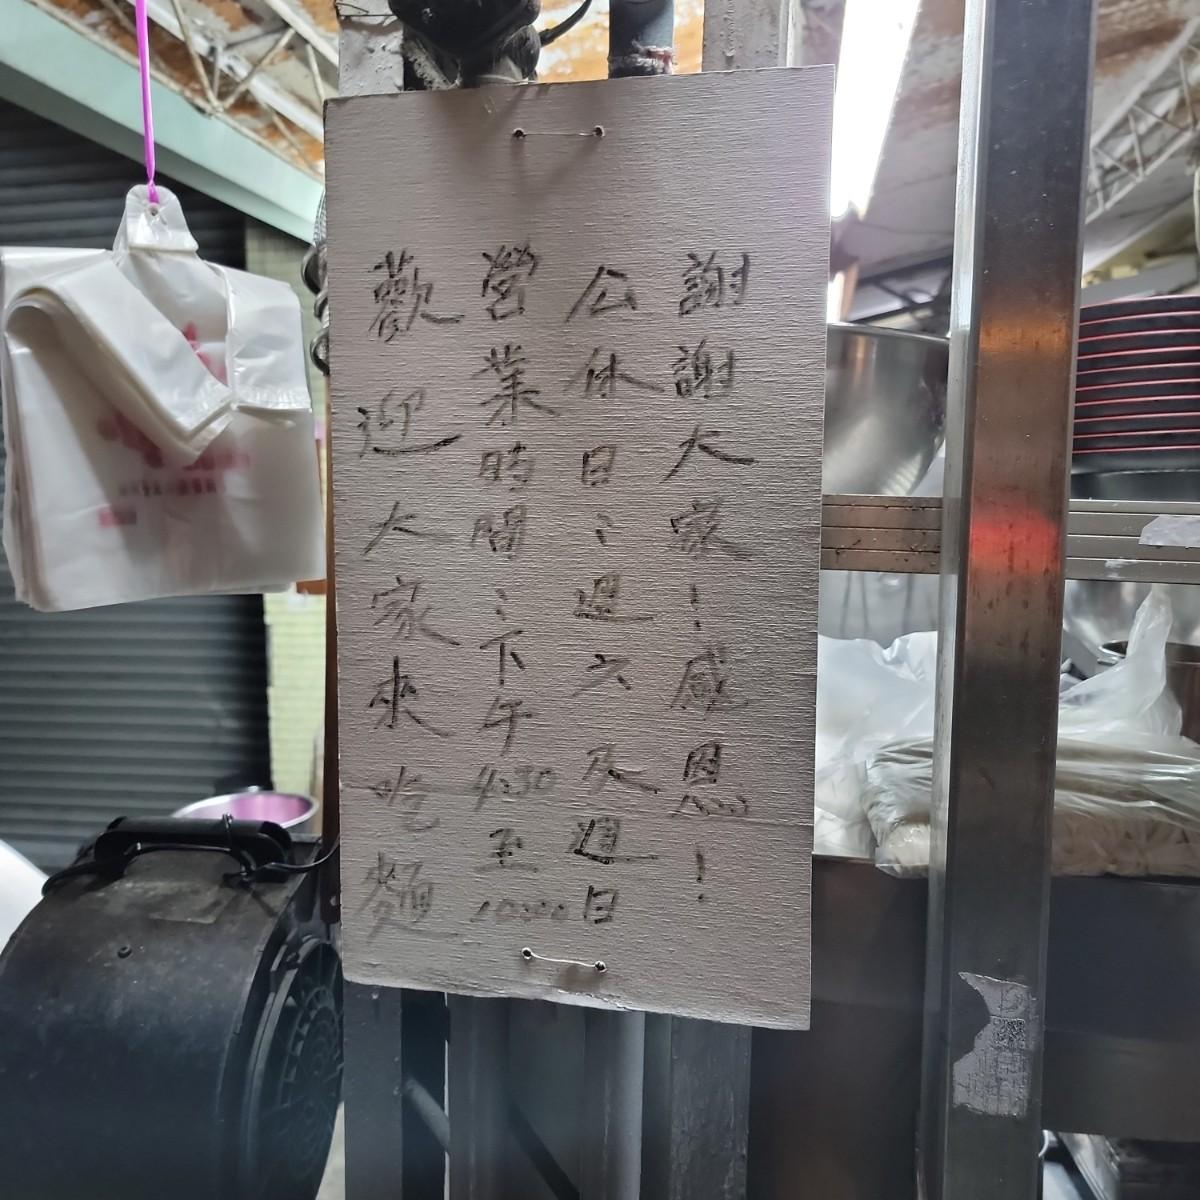 歡迎大家來吃麵
營業時間：下午4:30至10:00
公休日：週六及週日
謝謝大家！感恩！